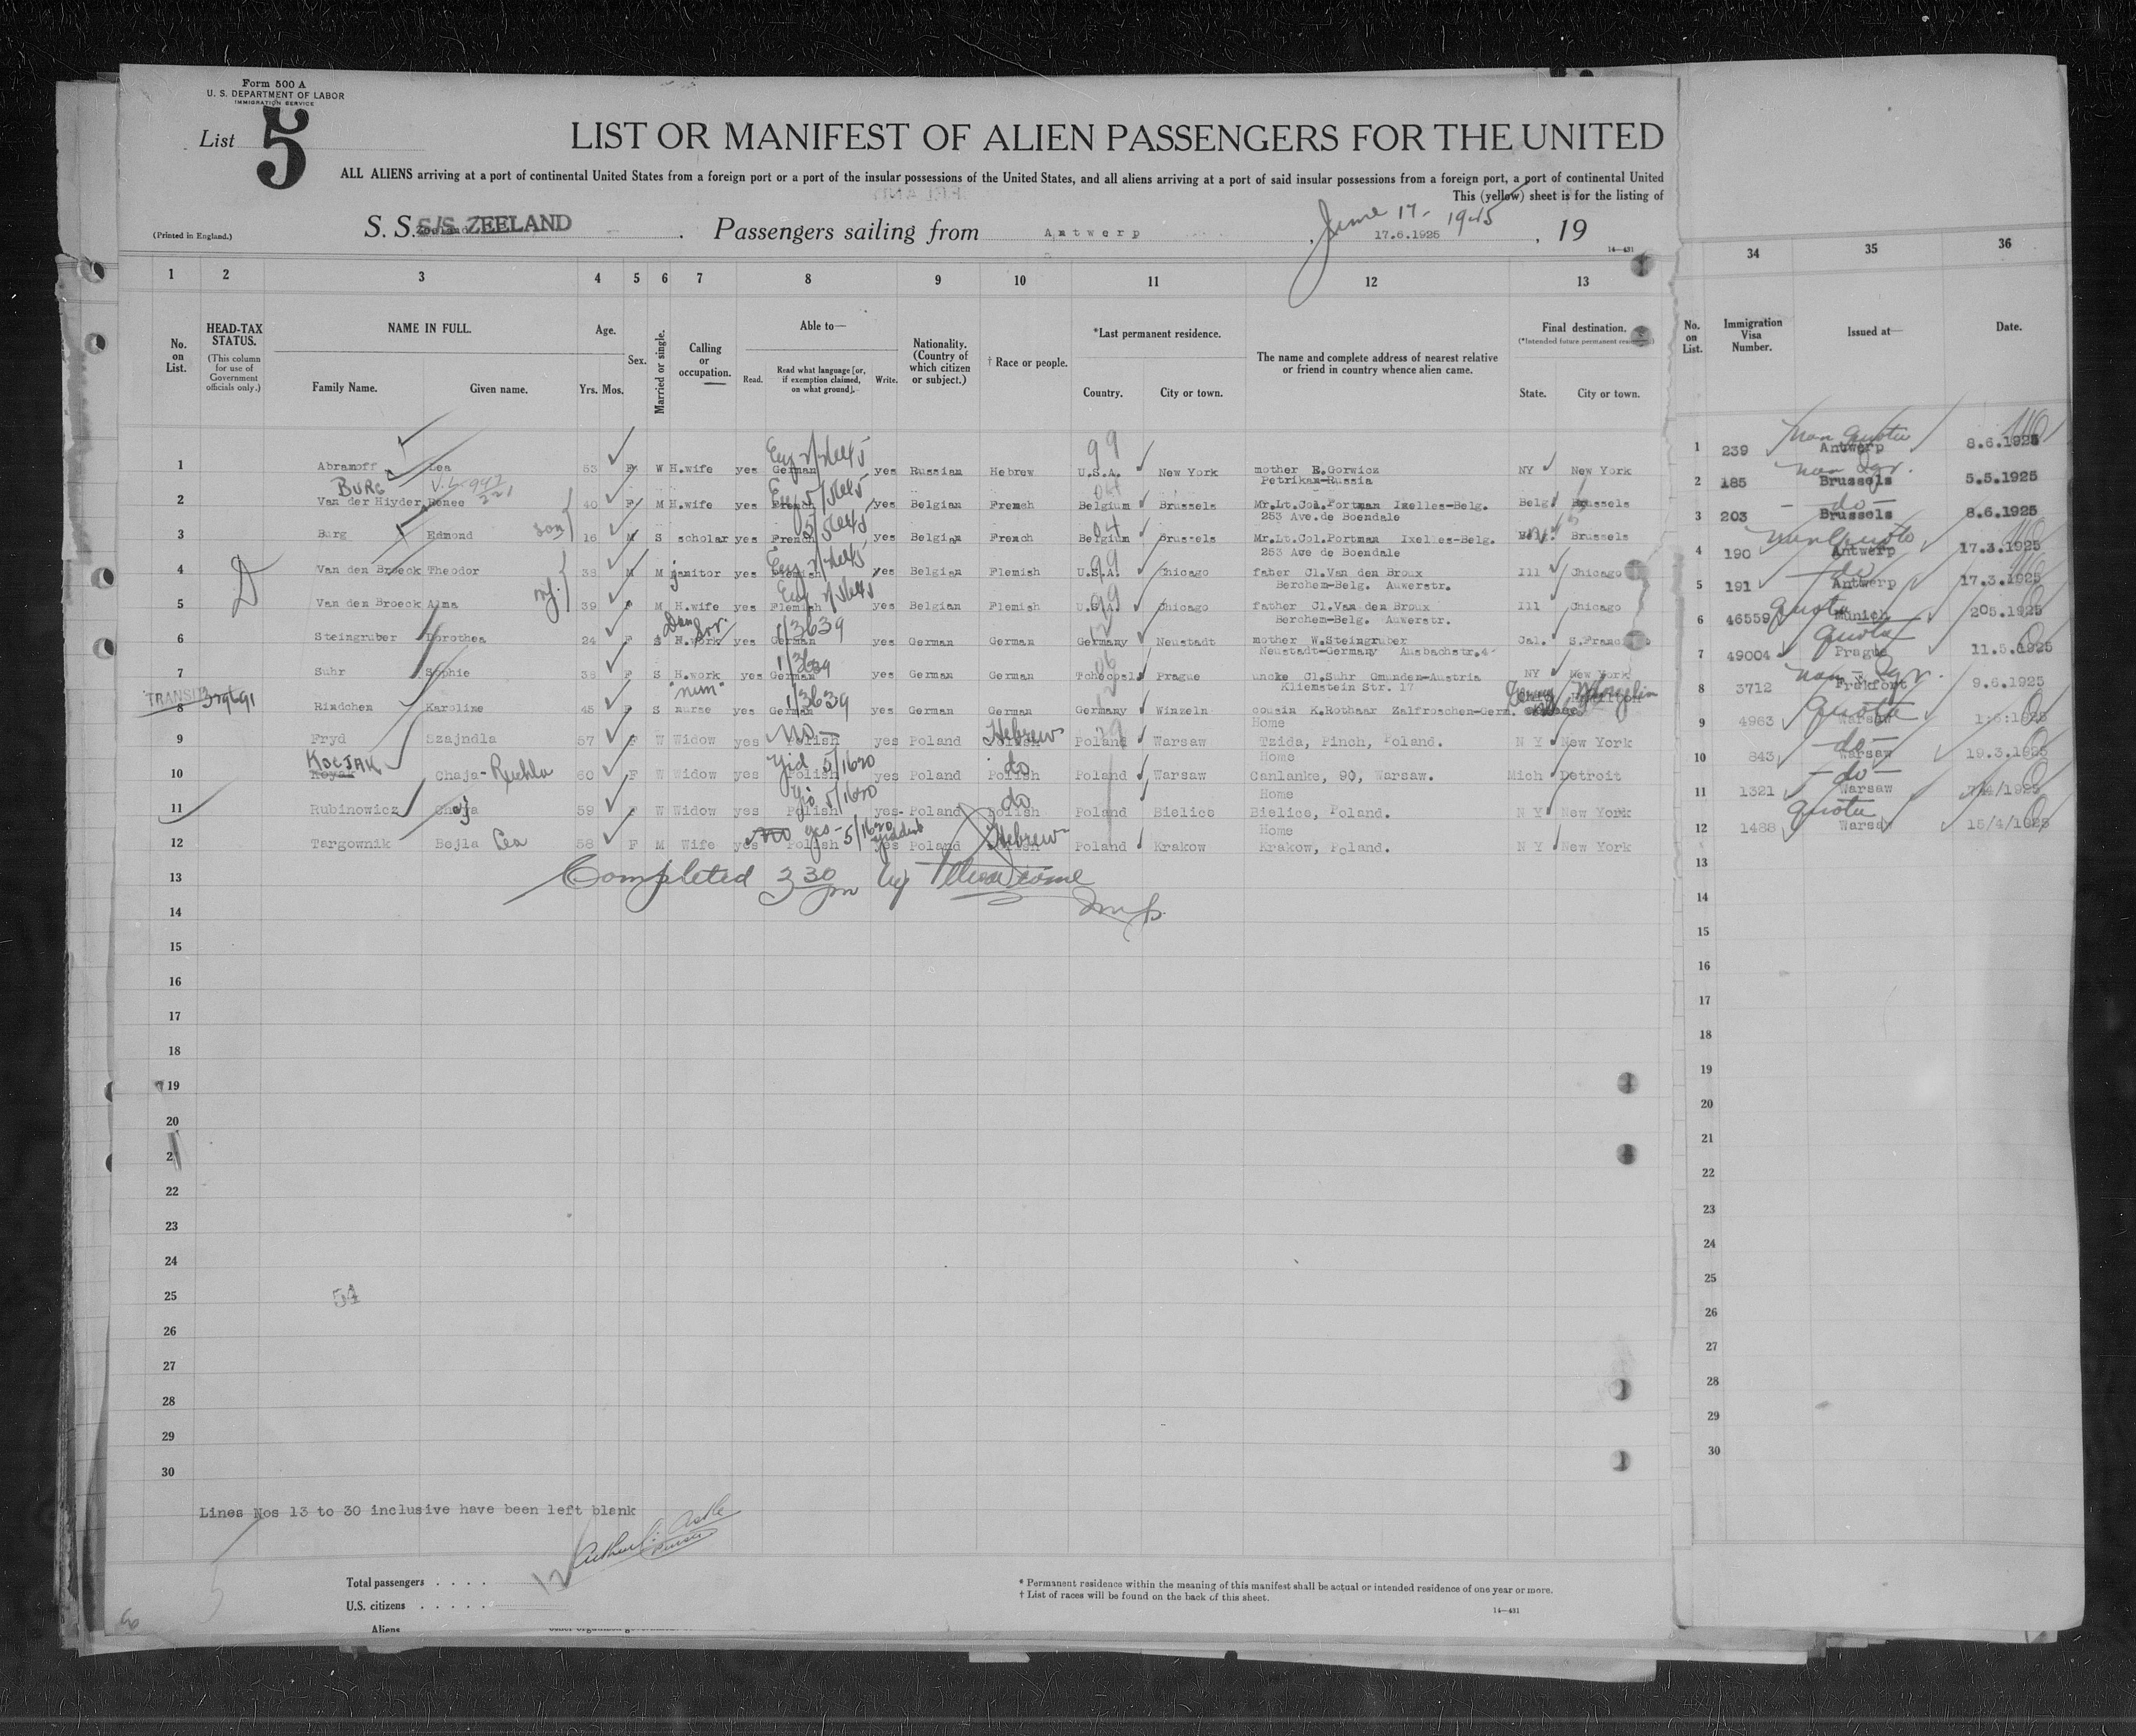 Form 500 A
U. S. DEPARTMENT OF LABOR
IMMIGRATION SERVICE
List 5
LIST OR MANIFEST OF ALIEN PASSENGERS FOR THE UNITED
ALL ALIENS arriving at a port of continental United States from a foreign port or a port of the insular possessions of the United States, and all aliens arriving at a port of said insular possessions from a foreign port, a port of continental United
This (yellow) sheet is for the listing of
(Printed in England.) S. S. S/S ZEELAND Passengers sailing from Antwerp, June 17- 1925 17.6.1925, 19
14—431
1 2 3 4 5 6 7 8 9 10 11 12 13 34 35 36
No. on List. HEAD-TAX STATUS. (This column for use of Government officials only.) NAME IN FULL. Family Name. Given name. Age. Yrs. Mos. Sex. Married or single. Calling or occupation. Able to— Read. Read what language [or, if exemption claimed, on what ground]. Write. Nationality. (Country of which citizen or subject.) † Race or people. *Last permanent residence. Country. City or town. The name and complete address of nearest relative or friend in country whence alien came. Final destination. (*Intended future permanent residence.) State. City or town. No. on List. Immigration Visa Number. Issued at— Date.
1 Abramoff Lea 53 F W H.wife yes German Eng yes Russian Hebrew 99 U.S.A. New York mother E.Gorwicz NY New York 1 239 Non Quota Antwerp 8.6.1925
Petrikan-Russia
BURG
2 Van der Hiyder Renee 40 F M H.wife yes French yes Belgian French Belgium Brussels Mr.Lt.Col.Portman Ixelles-Belg. Belg Brussels 2 185 Brussels 5.5.1925
253 Ave.de Boendale
3 Burg Edmond son 16 M S scholar yes French yes Belgian French 04 Belgium Brussels Mr.Lt.Col.Portman Ixelles-Belg. Brussels 3 203 do Brussels 8.6.1925
253 Ave de Boendale
4 Van den Broeck Theodor 38 M M janitor yes Flemish Eng yes Belgian Flemish 99 U.S.A. Chicago fater Cl.Van den Broux Ill Chicago 4 190 Non Quota Antwerp 17.3.1925
Berchem-Belg. Auwerstr.
D
5 Van den Broeck Alma 39 F M H.wife yes Flemish Eng yes Belgian Flemish 99 U.S.A. Chicago father Cl.Van den Broux Ill Chicago 5 191 do Antwerp 17.3.1925
Berchem-Belg. Auwerstr.
6 Steingruber Dorothea 24 F S H.work yes German 1/3639 yes German German 12 Germany Neustadt mother W.Steingruber Cal. S.Franc 6 46559 Quota Munich 205.1925
Neustadt-Germany Ausbachstr.4
7 Suhr Sophie 38 F S H.work yes German 1/3639 yes German German 06 Tchecosl. Prague uncke Cl.Suhr Gmunden-Austria NY New York 7 49004 Quota Prague 11.5.1925
Kliemstein Str. 17
TRANSIT 379691
8 Rindchen Karoline 45 F S "nun" nurse yes German 1/3639 yes German German 12 Germany Winzeln cousin K.Rothaar Zalfroschen-Germ. 8 3712 Frakfort 9.6.1925
Home
9 Fryd Szajndla 57 F W Widow yes No Polish yes Poland Hebrew Poland Warsaw Tzida, Pinch, Poland. N Y New York 9 4963 Quota Warsaw 1:5:1925
Home
10 KOCJAK Koyak Chaja-Ruchla 60 F W Widow yes Yid 5/1620 Polish yes Poland Polish do Poland Warsaw Canlanke, 90, Warsaw. Mich Detroit 10 843 do Warsaw 19.3.1925
Home
11 Rubinowicz Chaja 59 F W Widow yes Yid 5/1620 Polish yes Poland Polish do Poland Bielice Bielice, Poland. N Y New York 11 1321 do Warsaw /4/1925
Home
12 Targownik Bejla Lea 58 F M Wife yes No yes- 5/1620 Polish yes Poland Hebrew Poland Krakow Krakow, Poland. N Y New York 12 1488 Quota Warsaw 15/4/1925
13 Completed 3 30 pm by 13
14 14
15 15
16 16
17 17
18 18
19 19
20 20
2 21
22 22
23 23
24 24
25 54 25
26 26
27 27
28 28
29 29
30 30
Lines Nos 13 to 30 inclusive have been left blank
Total passengers . . . . 12
U.S. citizens . . . . .
Aliens
* Permanent residence within the meaning of this manifest shall be actual or intended residence of one year or more.
† List of races will be found on the back of this sheet.
14—431